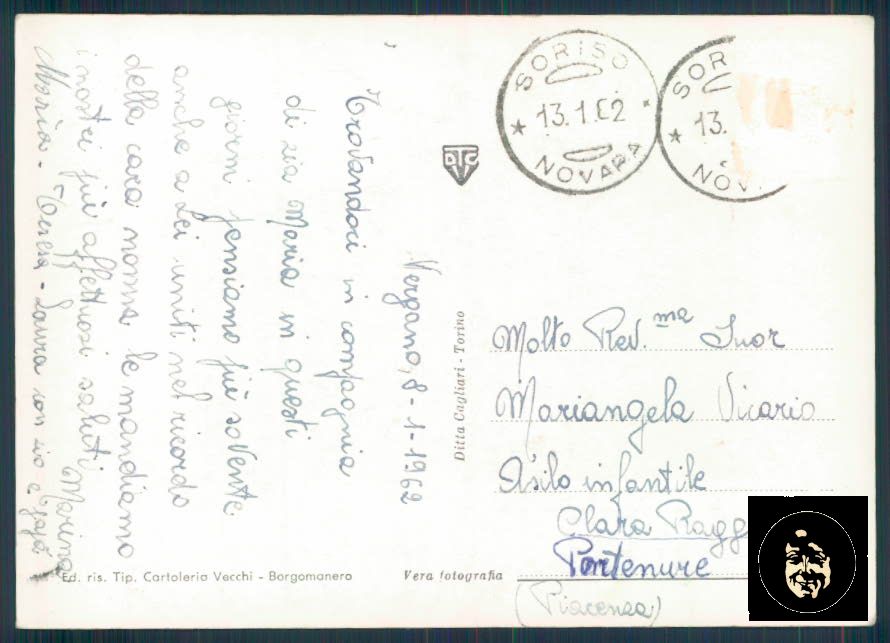 Vergano, 8-1-1962
Trovandoci in compagnia
di zia Maria in questi
giorni pensiamo più sovente
anche a Lei uniti nel ricordo
della cara nonna le mandiamo
i nostri più affettuosi saluti
Marina
Maria - Teresa - Laura con zio e
Ed. ris. Tip. Cartoleria Vecchi - Borgomanero
Vera fotografia
Ditta Cagliari - Torino
DTC
SORISO
13.1.62
NOVARA
SOR
13.
NOV
Molto Rev.ma Suor
Mariangela Vicario
Asilo infantile
Clara Ragg
Pontenure
(Piacenza)